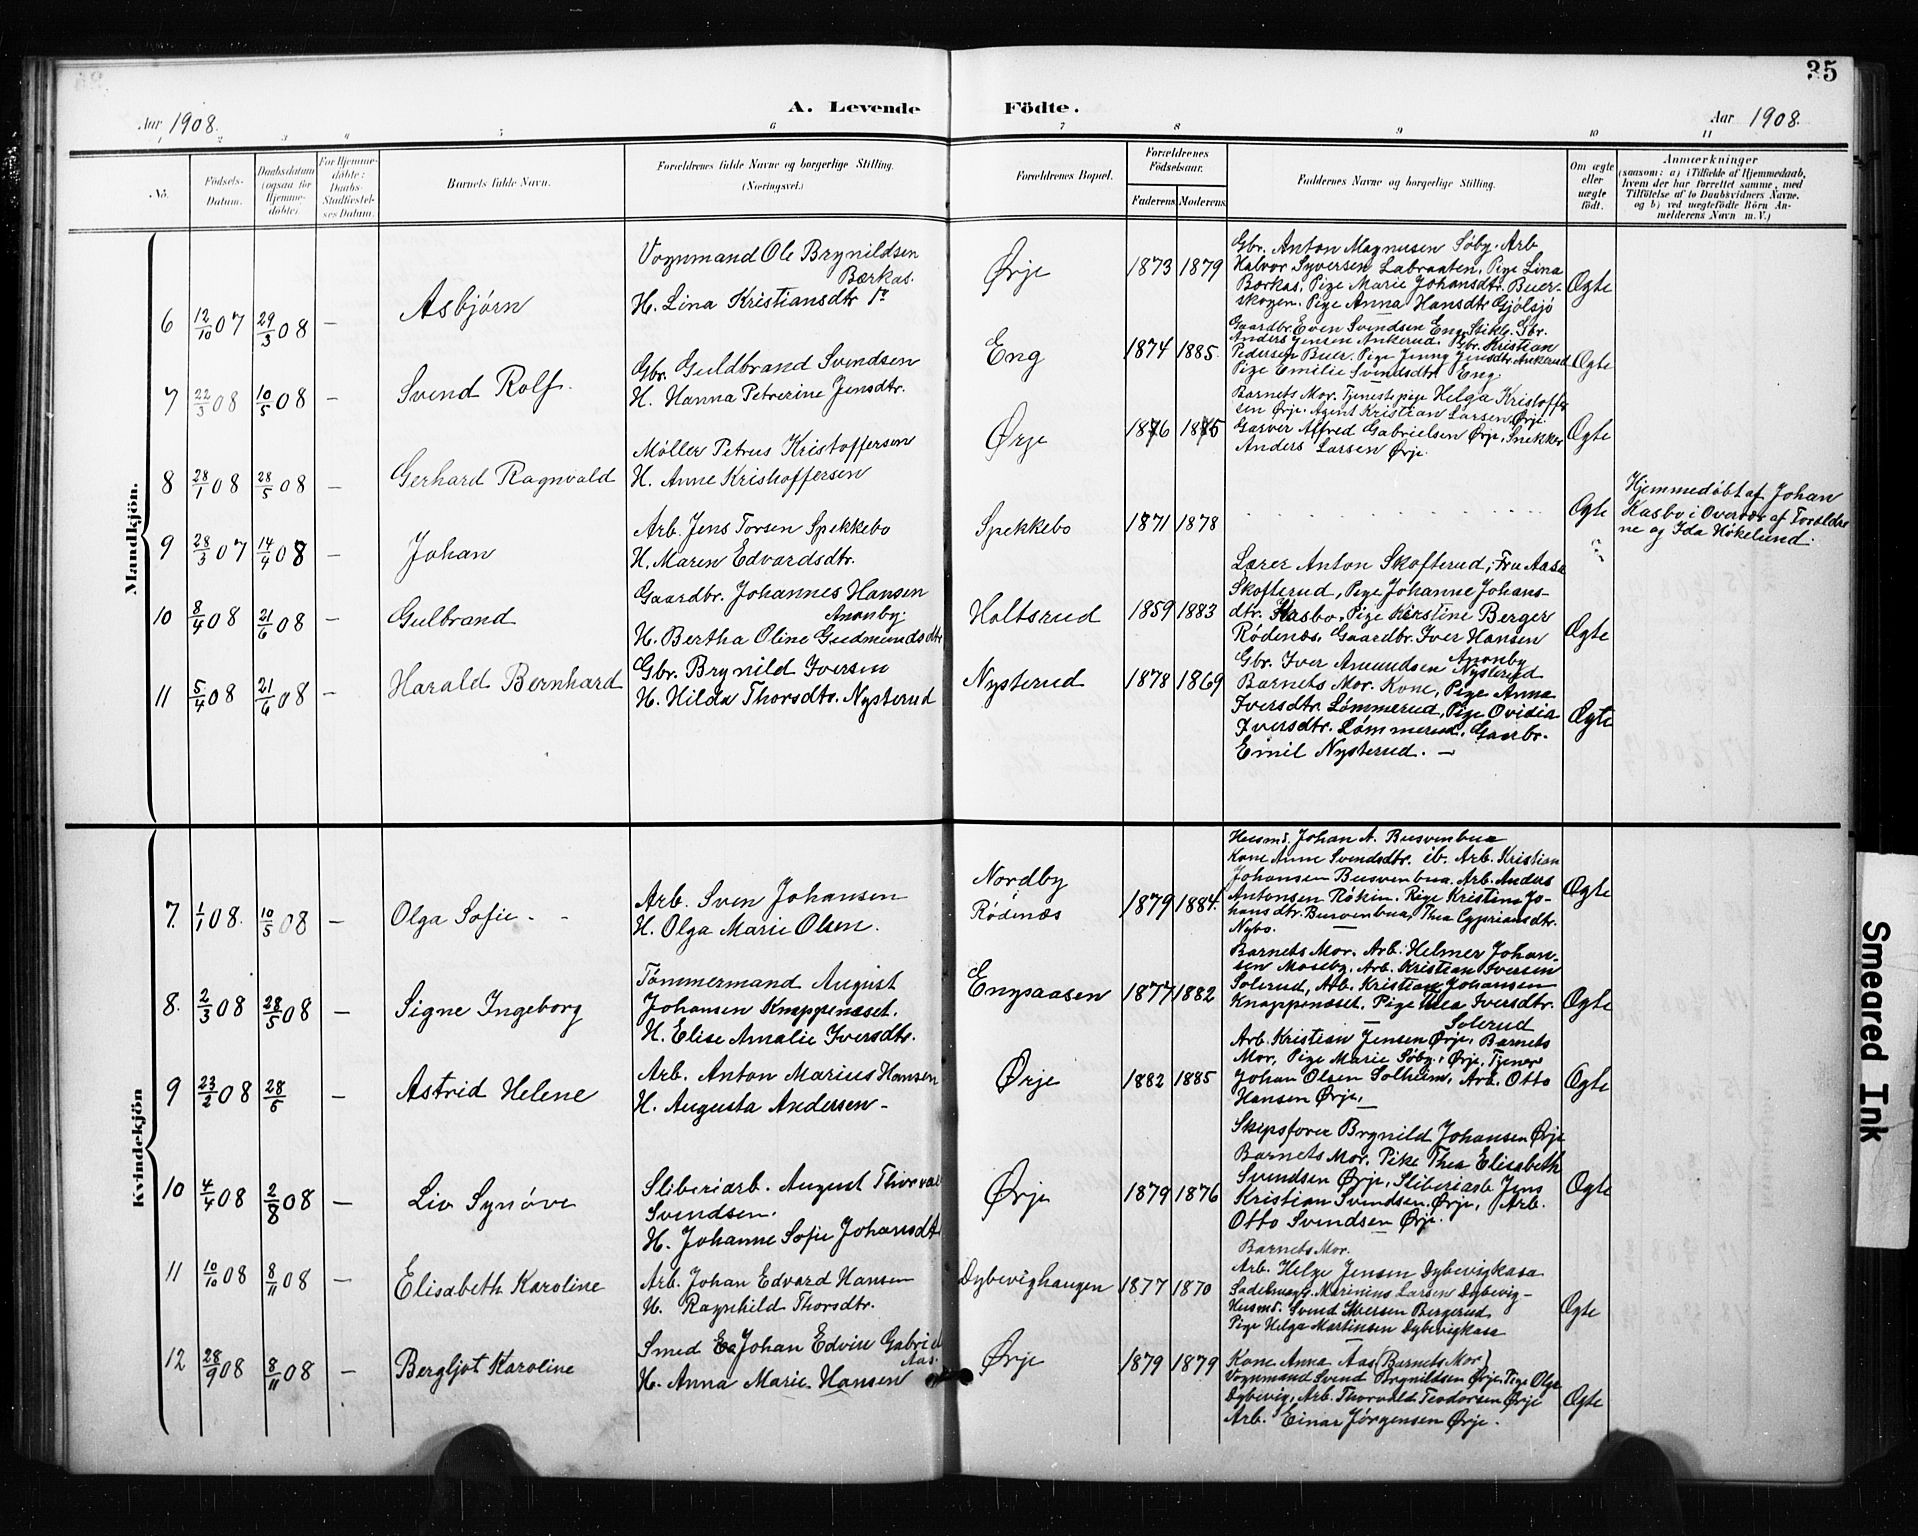 35
A. Levende Födte.
Aar 1908.
Aar 1908.
1 2 3 4 5 6 7 8 9 10 11
No.
Födsels-Datum.
Daabsdatum (ogsaa for Hjemmedöbte).
For Hjemmedöbte: Daabs-Stadfæstelses Datum.
Barnets fulde Navn.
Forældrenes fulde Navne og borgerlige Stilling.
(Næringsvei.)
Forældrenes Bopæl.
Forældrenes Födselsaar.
Faderens
Moderens
Faddernes Navne og borgerlige Stilling.
Om ægte eller uægte födt.
Anmærkninger
(saasom: a) i Tilfælde af Hjemmedaab,
hvem der har forrettet samme, med
Tilföielse af to Daabsvidners Navne.
og b) ved uægtefödte Börn An-
melderens Navn m. V.)
Mandkjön.
6 12/10 07 29/3 08 — Asbjørn
Vognmand Ole Brynildsen
Bærkas.
H. Lina Kristiansdtr
Ørje 1873 1879
Gbr. Anton Magnusen Søby. Arb
Halvor Syversen Labraaten, Pige Lina
Bærkas, Pige Marie Johansdtr. Buer-
skogen. Pige Anna Hansdtr Gjølsjø
Ægte
7 22/3 08 10/5 08 — Svend Rolf.
Gbr. Guldbrand Svendsen
H. Hanna Petrerine Jensdtr.
Eng 1874 1885.
Gaardbr. Even Svendsen Eng. Gbr.
Anders Jensen Ankerud. Gbr. Kristian
Pedersen Buer. Pige Jenny Jensdtr. Ankerud
Pige Emilie Svendsdtr Eng.
Ægte
8 28/1 08 28/5 08 — Gerhard Ragnvald
Møller Petrus Kristoffersen
H. Anne Kristoffersen
Ørje 1876 1875
Barnets Mor. Tjenestepige Helga Kristoffer
sen Ørje. Agent Kristian Larsen Ørje.
Garver Alfred Gabrielsen Ørje, Snekker
Anders Larsen Ørje.
Ægte
9 28/3 07 14/4 08 — Johan
Arb. Jens Torsen Spekkebo
H. Maren Edvardsdtr.
Spekkebo 1871 1878
Ægte
Hjemmedøbt af Johan
Kasbo i Overvær af Forældre
ne og Ida Høkelund.
10 8/4 08 21/6 08 — Gulbrand
Gaardbr. Johannes Hansen
Anonby
H. Bertha Oline Gudmundsdtr
Holtsrud 1859 1883
Lærer Anton Skofterud, Fru Aasa
Skofterud, Pige Johanne Johans-
dtr. Kasbo, Pige Kirstine Berger
Rødenæs, Gaardbr. Iver Hansen
Anonby
Ægte
11 5/4 08 21/6 08 — Harald Bernhard
Gbr. Brynild Iversen
H. Hilda Thorsdtr. Nysterud
Nysterud 1878 1869
Gbr. Iver Amundsen Nysterud
Barnets Mor. Kone, Pige Anna
Iversdtr. Lømmerud, Pige Ovidia
Iversdtr. Lømmerud, Gaarbr.
Emil Nysterud. —
Ægte
Kvindekjön
7. 1/1 08. 10/5 08 — Olga Sofie
Arb. Sven Johansen
H. Olga Marie Olsen.
Nordby
Rødenæs 1879 1884.
Husmd. Johan A. Busvenbua
Kone Anne Svendsdtr. ib. Arb. Kristian
Johansen Busvenbua. Arb. Anders
Antonsen Røkin. Pige Kristine Jo-
hansdtr. Busvenbua, Thea Cypriansdtr.
Nybo.
Ægte
8. 2/3 08 28/5 08 — Signe Ingeborg
Tømmermand August
Johansen Knappenæset.
H. Elise Amalie Iversdtr.
Engsaasen 1877 1882
Barnets Mor. Arb. Helmer Johan-
sen Moseby. Arb. Kristian Iversen
Solerud, Arb. Kristian Johansen
Knappenæset. Pige Thea Iversdtr.
Solerud
Ægte
9 23/2 08 28/5 — Astrid Helene
Arb. Anton Marius Hansen
H. Augusta Andersen -
Ørje 1882 1885
Arb. Kristian Jensen Ørje, Barnets
Mor, Pige Marie Søby, Ørje, Tjener
Johan Olsen Solheim, Arb. Otto
Hansen Ørje.
Ægte
10 4/4 08 2/8 08 — Liv Synøve
Sliberiarb. August Thorval
Svendsen.
H. Johanne Sofie Johansdt
Ørje 1879 1876
Skipsfører Brynild Johansen Ørje
Barnets Mor. Pike Thea Elisabeth
Svendsen Ørje, Sliberiarb Jens
Kristian Svendsen Ørje, Arb.
Otto Svendsen Ørje.
Ægte
11 10/10 08 8/11 08 — Elisabeth Karoline
Arb. Johan Edvard Hansen
H. Ragnhild Thorsdtr.
Dybevighaugen 1877 1870
Barnets Mor.
Arb. Helge Jensen Dybevigkasa
Sadelmag. Marinius Larsen Dybevig-
Husmd. Svend Iversen Bergerud
Pige Helga Martinsen Dybevigkasa
Ægte
12 28/9 08 8/11 08 — Bergljot Karoline
Smed Johan Edvin Gabriel
Aas.
H. Anna Marie Hansen
Ørje 1879 1879
Kone Anna Aas (Barnets Mor)
Vognmand Svend Brynildsen Ørje. Pige Olga
Dybevig, Arb. Thorvald Teodorsen Ørje
Arb. Einar Jørgensen Ørje.
Ægte
Smeared Ink